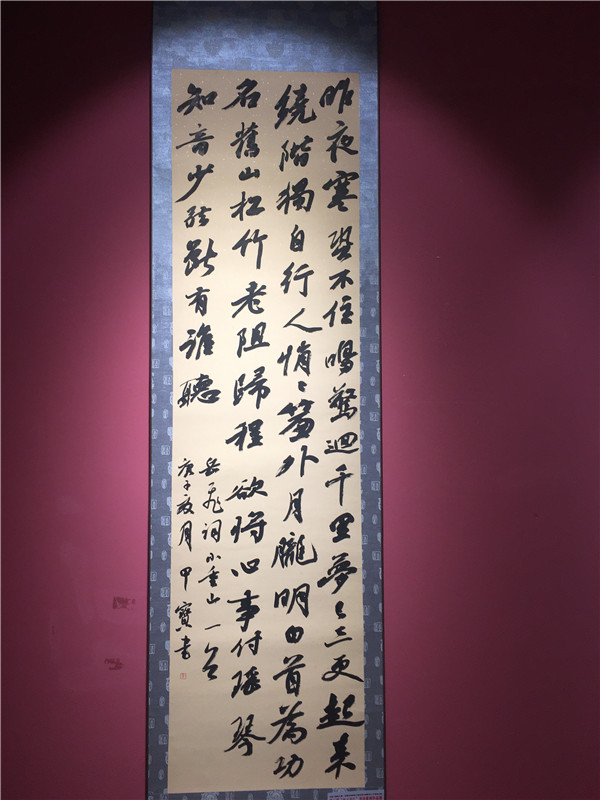 昨夜寒蛩不住鳴驚迴千里夢已三更起来
繞階獨自行人悄〻簾外月朧明白首為功
名舊山松竹老阻歸程欲將心事付瑤琴
知音少絃斷有誰聽
岳飛詞小重山一首
庚子夏月甲寶書